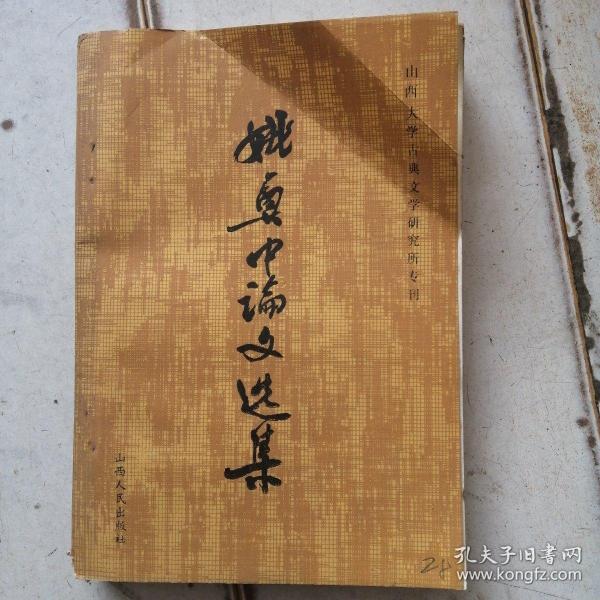 山西大学古典文学研究所专刊
姚奠中論文选集
山西人民出版社
24
孔夫子旧书网
www.kongfz.com